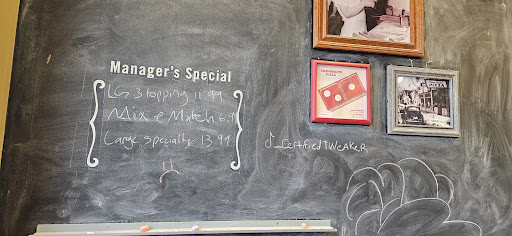 Manager's Special
LG 3 topping 11.99
Mix e Match 6.9
Large specialty 13.99
_CertifiedTWeAKeR